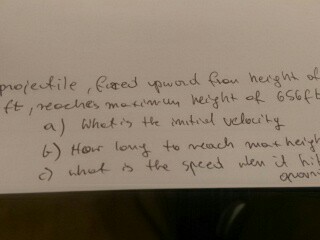 projectile, fired upword from height of
ft, reaches maximum height of 656ft
a) What is the initial velocity
b) How long to reach max heigh
c) what is the speed when it hi